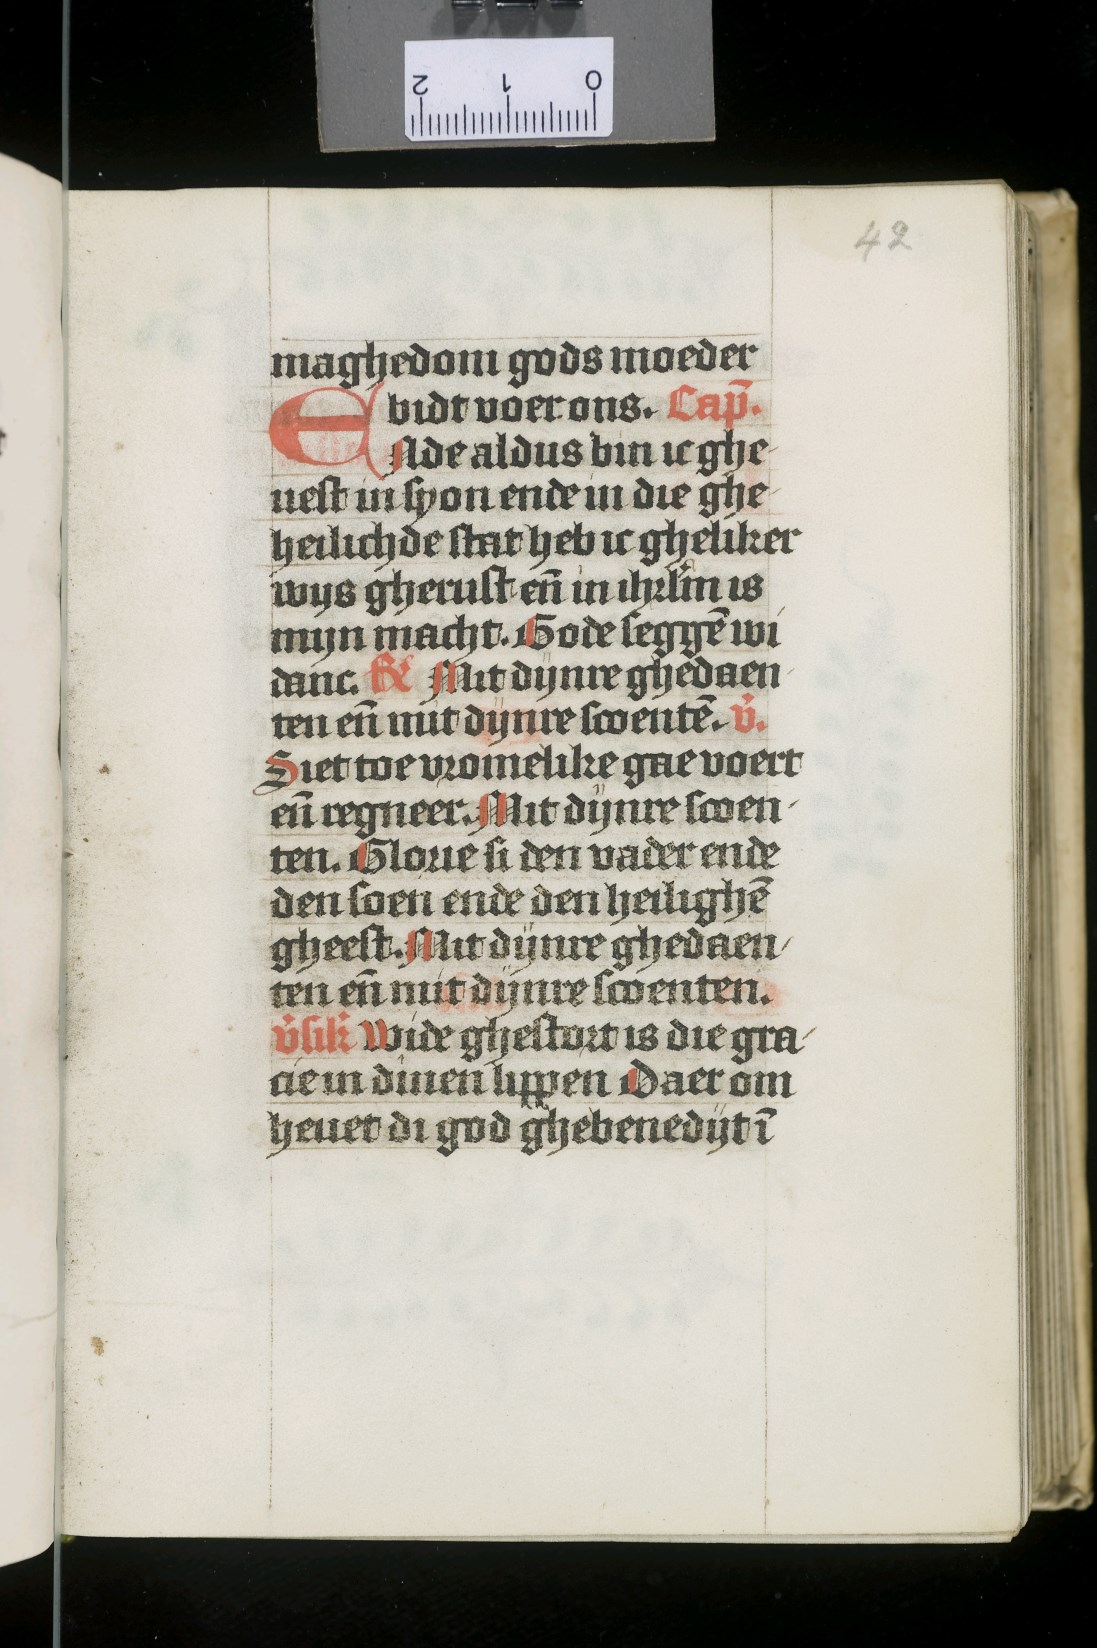 2 1 0
42
maghedom gods moeder
bidt voer ons. Cap̄.
ENde aldus bin ic ghe-
uest in syon ende in die ghe-
heilichde stat heb ic gheliker
wijs gherust en̄ in ihrl̄m is
mijn macht. Gode seggē wi
danc. R Mit dijnre ghedaen-
ten en̄ mit dijnre scoentē. v̄.
Siet toe vromelike gae voert
en̄ regneer. Mit dijnre scoen-
ten. Glorie si den vader ende
den soen ende den heilighē
gheest. Mit dijnre ghedaen-
ten en̄ mit dijnre scoenten.
v̄sik̄ Wide ghestort is die gra-
cie in dinen lippen Daer om
heuet di god ghebenedijt ī